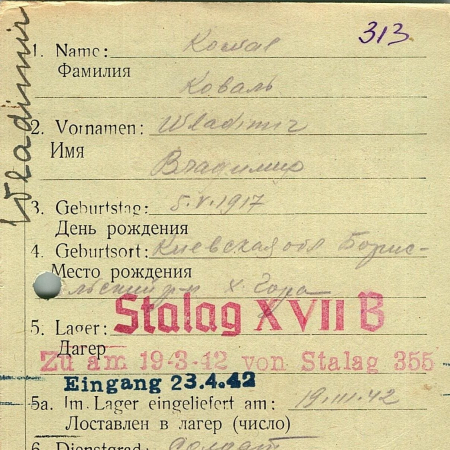 Wladimir
313
1. Name: Kowal
Фамилия
Коваль
2. Vornamen: Wladimir
Имя
Владимир
3. Geburtstag: 5.V.1917
День рождения
4. Geburtsort: Киевская обл Борис-
Место рождения
польский р-н х Гора
5. Lager: Stalag XVII B
Лагер
Zu am 19-3-42 von Stalag 355
Eingang 23.4.42
5a. Im Lager eingeliefert am: 19.III.42
Доставлен в лагер (число)
6. Dienstgrad: солдат